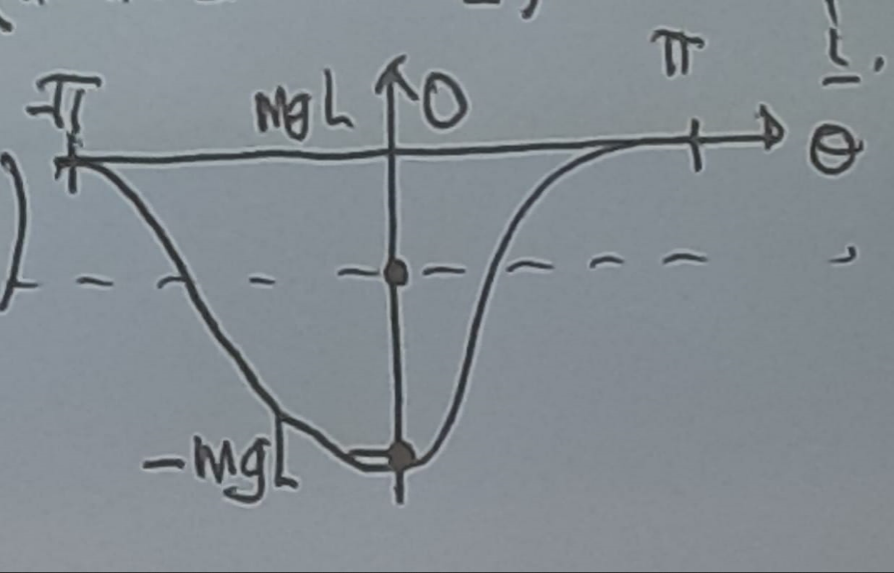 -π
π
mgL
0
θ
-mgL